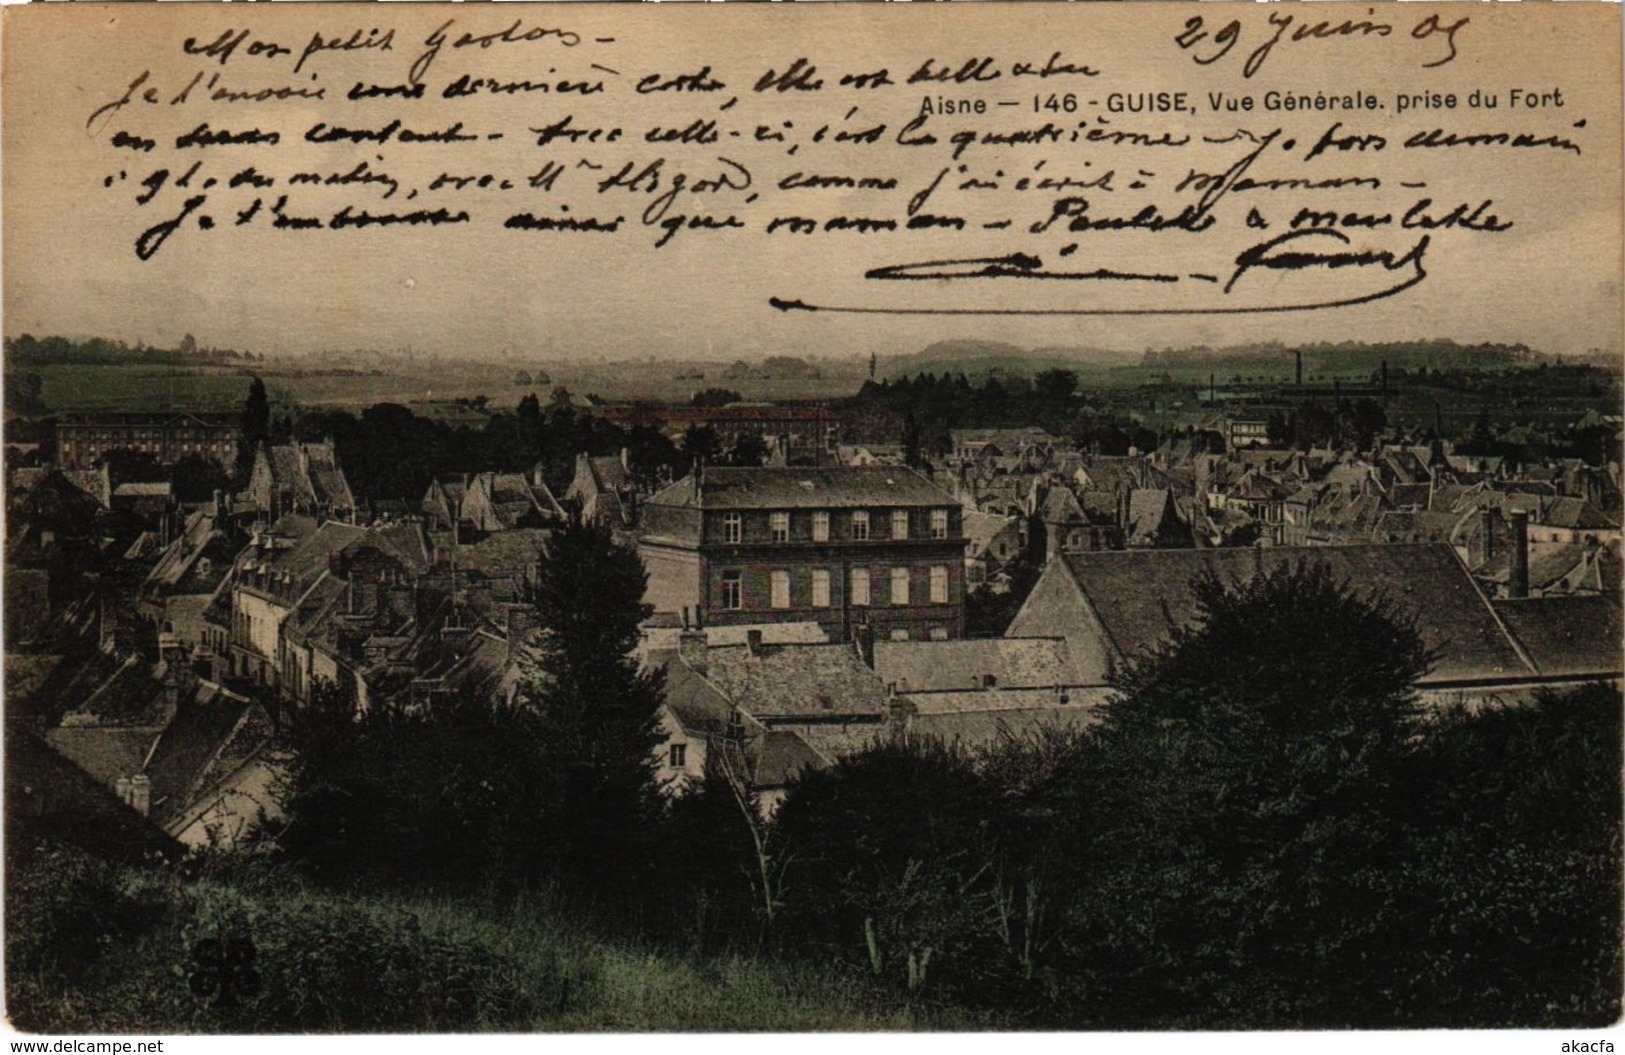 Mon petit Gaston –
29 Juin 05
Je t'envoie une dernière carte, elle est belle et tu
Aisne – 146 - GUISE, Vue Générale. prise du Fort
en seras content – Avec celle-ci, c'est la quatrième – Je pars demain
à 9 h. du matin, avec Mr, comme j'ai écrit à Maman –
Je t'embrasse ainsi que maman – Paulette &
www.delcampe.net
akacfa